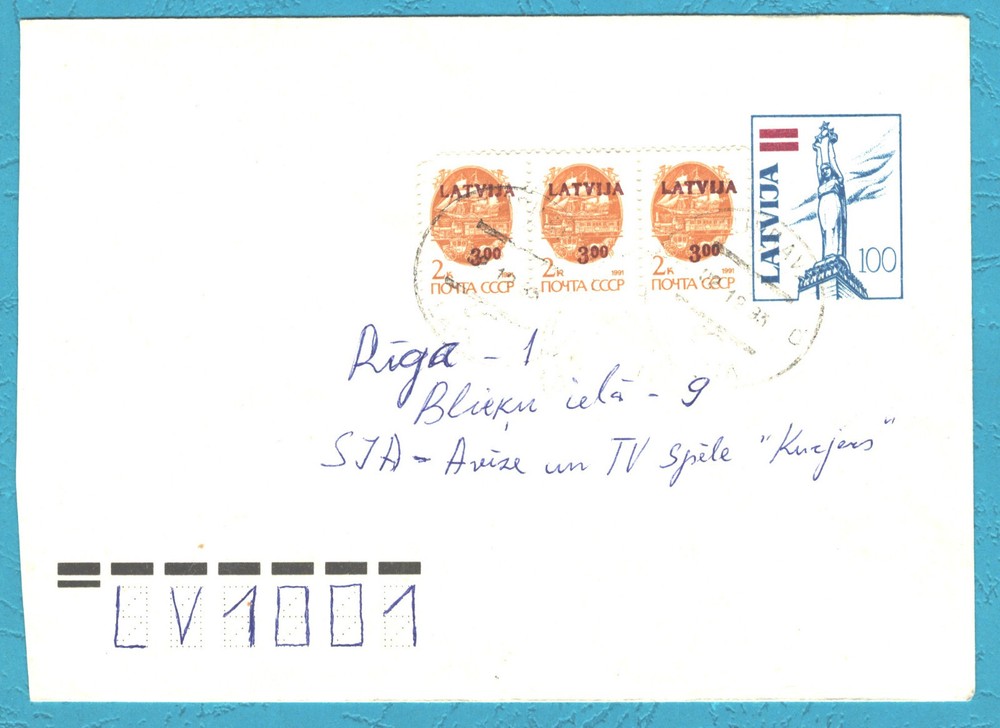 LATVIJA LATVIJA LATVIJA
3.00 3.00 3.00
2к 1991 2к 1991 2к 1991
ПОЧТА СССР ПОЧТА СССР ПОЧТА СССР
LATVIJA
100
Rīga - 1
Blieķu ielā - 9
SIA - Avīze un TV spēle "Kurjers"
LV1001